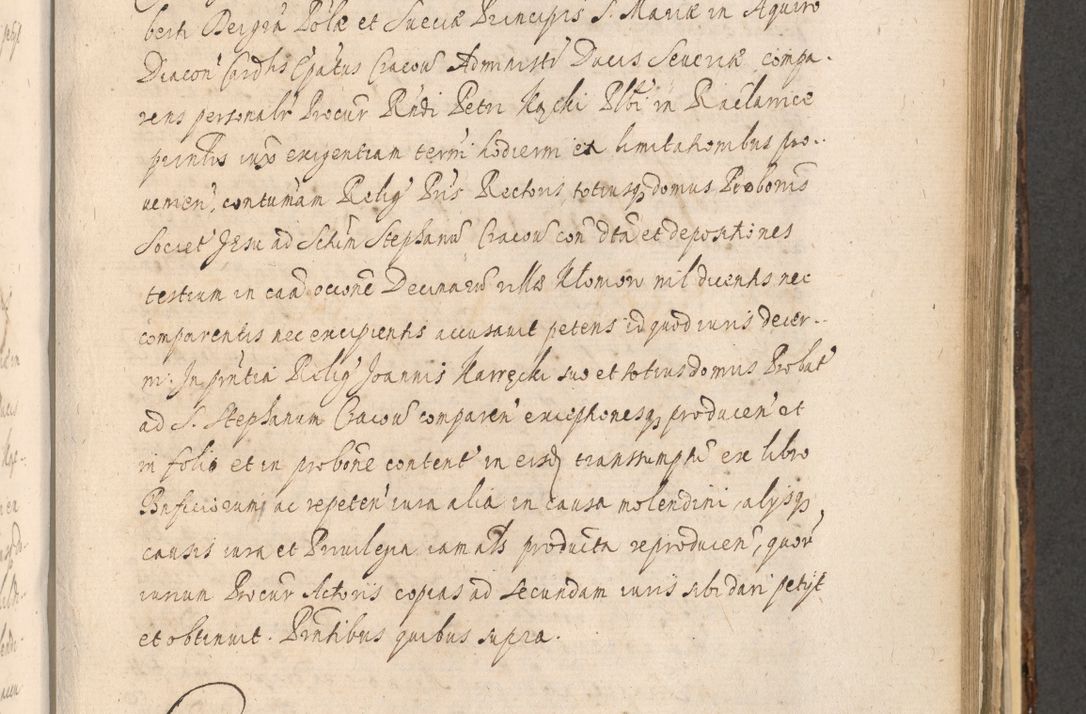 berti Dei gra Polæ et Sueciæ Principis S. Mariæ in Aquiro
Diacon Cardlis Epatus Cracou Administr Ducis Severiæ compa-
rens personalr Procur Rndi Petri Kącki Plbi in Raclawice
pnntis iuxa exigentiam termi hodierni ex limitationibus pro-
venien, contumam Relig Pris Rectoris, totiusq domus Probonis
Societ Jesu ad S Stephanu Cracou con dta et depositiones
testium in caa ocione Decimaru villæ Klomow nil dicentis nec
comparentis nec excipientis accusavit petens id quod iuris decer-
ni. In pntia Relig Joannis Karręcki suo et totius domus Probat
ad S. Stephanum Cracou comparen exceptionesq producen et
in folio et in probone content in eisd transsumptu ex libro
Bnficiorum ac repeten iura alia in causa molendini alijsq
causis iura et Privilegia iam als producta reproducen, quor
iurium Procur Actoris copias ad secundam iuris sibi dari petijt
et obtinuit. Pntibus quibus supra.